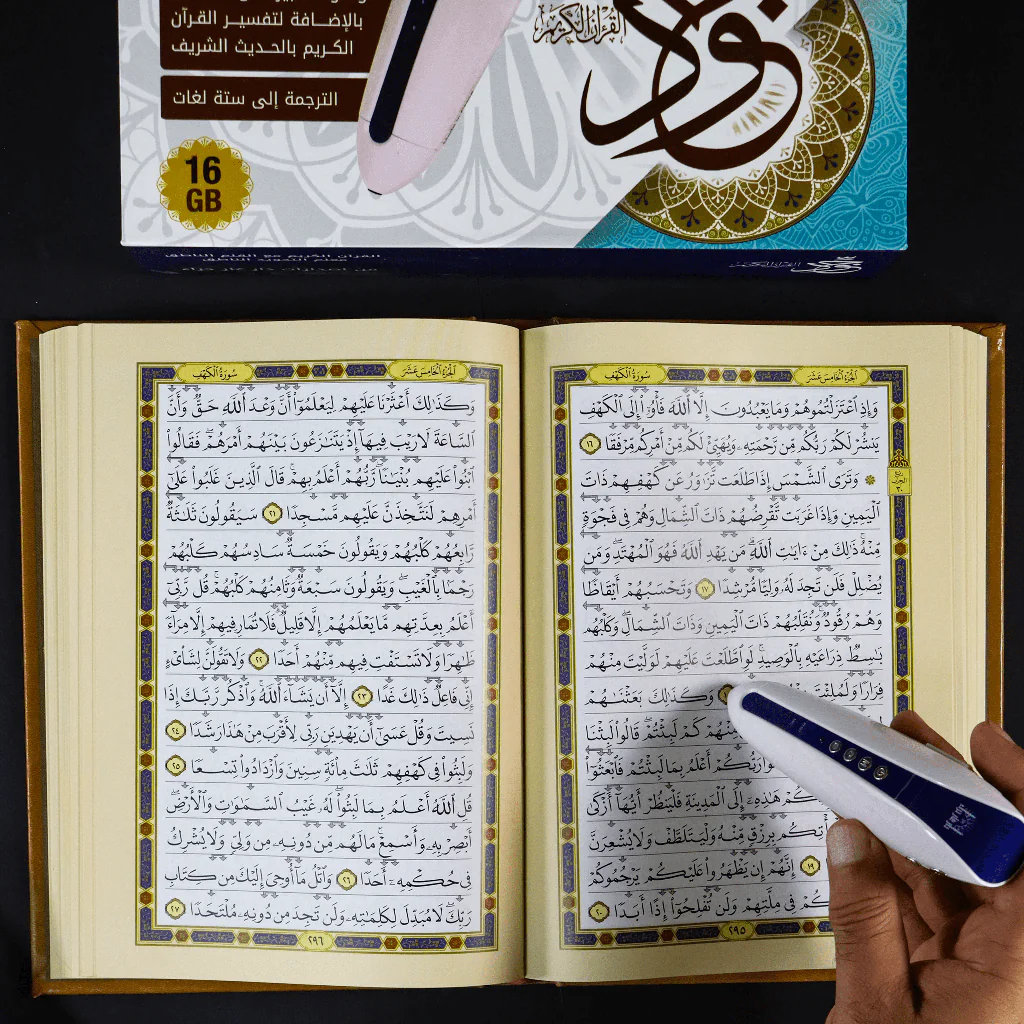 بالإضافة لتفسير القرآن
الكريم بالحديث الشريف
الترجمة إلى ستة لغات
16
GB
القرآن الكريم
نون
القرآن الكريم مع القلم الناطق
الجزء الخامس عشر
سورة الكهف
وَإِذِ ٱعْتَزَلْتُمُوهُمْ وَمَا يَعْبُدُونَ إِلَّا ٱللَّهَ فَأْوُۥٓا۟ إِلَى ٱلْكَهْفِ
يَنشُرْ لَكُمْ رَبُّكُم مِّن رَّحْمَتِهِۦ وَيُهَيِّئْ لَكُم مِّنْ أَمْرِكُم مِّرْفَقًا ١٦
۞ وَتَرَى ٱلشَّمْسَ إِذَا طَلَعَت تَّزَٰوَرُ عَن كَهْفِهِمْ ذَاتَ
ٱلْيَمِينِ وَإِذَا غَرَبَت تَّقْرِضُهُمْ ذَاتَ ٱلشِّمَالِ وَهُمْ فِى فَجْوَةٍ
مِّنْهُ ۚ ذَٰلِكَ مِنْ ءَايَٰتِ ٱللَّهِ ۗ مَن يَهْدِ ٱللَّهُ فَهُوَ ٱلْمُهْتَدِ ۖ وَمَن
يُضْلِلْ فَلَن تَجِدَ لَهُۥ وَلِيًّا مُّرْشِدًا ١٧ وَتَحْسَبُهُمْ أَيْقَاظًا
وَهُمْ رُقُودٌ ۚ وَنُقَلِّبُهُمْ ذَاتَ ٱلْيَمِينِ وَذَاتَ ٱلشِّمَالِ ۖ وَكَلْبُهُم
بَٰسِطٌ ذِرَاعَيْهِ بِٱلْوَصِيدِ ۚ لَوِ ٱطَّلَعْتَ عَلَيْهِمْ لَوَلَّيْتَ مِنْهُمْ
فِرَارًا وَلَمُلِئْتَ وَكَذَٰلِكَ بَعَثْنَٰهُمْ
مِّنْهُمْ كَمْ لَبِثْتُمْ ۖ قَالُوا۟ لَبِثْنَا
قَالُوا۟ رَبُّكُمْ أَعْلَمُ بِمَا لَبِثْتُمْ فَٱبْعَثُوٓا۟
هَٰذِهِۦٓ إِلَى ٱلْمَدِينَةِ فَلْيَنظُرْ أَيُّهَآ أَزْكَىٰ
بِرِزْقٍ مِّنْهُ وَلْيَتَلَطَّفْ وَلَا يُشْعِرَنَّ
١٩ إِنَّهُمْ إِن يَظْهَرُوا۟ عَلَيْكُمْ يَرْجُمُوكُمْ
فِى مِلَّتِهِمْ وَلَن تُفْلِحُوٓا۟ إِذًا أَبَدًا ٢٠
٢٩٥
الجزء الخامس عشر
سورة الكهف
وَكَذَٰلِكَ أَعْثَرْنَا عَلَيْهِمْ لِيَعْلَمُوٓا۟ أَنَّ وَعْدَ ٱللَّهِ حَقٌّ وَأَنَّ
ٱلسَّاعَةَ لَا رَيْبَ فِيهَآ إِذْ يَتَنَٰزَعُونَ بَيْنَهُمْ أَمْرَهُمْ ۖ فَقَالُوا۟
ٱبْنُوا۟ عَلَيْهِم بُنْيَٰنًا ۖ رَّبُّهُمْ أَعْلَمُ بِهِمْ ۚ قَالَ ٱلَّذِينَ غَلَبُوا۟ عَلَىٰٓ
أَمْرِهِمْ لَنَتَّخِذَنَّ عَلَيْهِم مَّسْجِدًا ٢١ سَيَقُولُونَ ثَلَٰثَةٌ
رَّابِعُهُمْ كَلْبُهُمْ وَيَقُولُونَ خَمْسَةٌ سَادِسُهُمْ كَلْبُهُمْ
رَجْمًۢا بِٱلْغَيْبِ ۖ وَيَقُولُونَ سَبْعَةٌ وَثَامِنُهُمْ كَلْبُهُمْ ۚ قُل رَّبِّىٓ
أَعْلَمُ بِعِدَّتِهِم مَّا يَعْلَمُهُمْ إِلَّا قَلِيلٌ ۗ فَلَا تُمَارِ فِيهِمْ إِلَّا مِرَآءً
ظَٰهِرًا وَلَا تَسْتَفْتِ فِيهِم مِّنْهُمْ أَحَدًا ٢٢ وَلَا تَقُولَنَّ لِشَا۟ىْءٍ
إِنِّى فَاعِلٌ ذَٰلِكَ غَدًا ٢٣ إِلَّآ أَن يَشَآءَ ٱللَّهُ ۚ وَٱذْكُر رَّبَّكَ إِذَا
نَسِيتَ وَقُلْ عَسَىٰٓ أَن يَهْدِيَنِ رَبِّى لِأَقْرَبَ مِنْ هَٰذَا رَشَدًا ٢٤
وَلَبِثُوا۟ فِى كَهْفِهِمْ ثَلَٰثَ مِا۟ئَةٍ سِنِينَ وَٱزْدَادُوا۟ تِسْعًا ٢٥
قُلِ ٱللَّهُ أَعْلَمُ بِمَا لَبِثُوا۟ ۖ لَهُۥ غَيْبُ ٱلسَّمَٰوَٰتِ وَٱلْأَرْضِ ۖ
أَبْصِرْ بِهِۦ وَأَسْمِعْ ۚ مَا لَهُم مِّن دُونِهِۦ مِن وَلِىٍّ وَلَا يُشْرِكُ
فِى حُكْمِهِۦٓ أَحَدًا ٢٦ وَٱتْلُ مَآ أُوحِىَ إِلَيْكَ مِن كِتَابِ
رَبِّكَ ۖ لَا مُبَدِّلَ لِكَلِمَٰتِهِۦ وَلَن تَجِدَ مِن دُونِهِۦ مُلْتَحَدًا ٢٧
٢٩٦